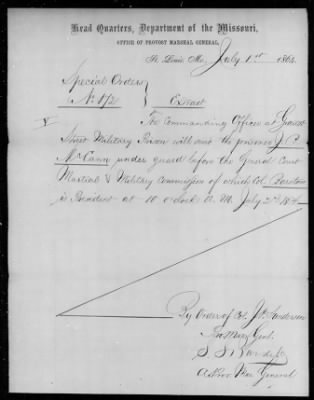 Head Quarters, Department of the Missouri,
OFFICE OF PROVOST MARSHAL GENERAL,
St. Louis Mo., July 1st 1864.
Special Orders
No. 172
Extract
V
The Commanding Officer at Gratiot
Street Military Prison will send the prisoner J. C.
McCann under guard before the General Court
Martial & Military Commission of which Col.
is President at 10 o'clock A. M. July 2nd 1864
By Order of Col. J. P. Sanderson
Pro Mar Genl.
S. S.
Act Pro Mar General